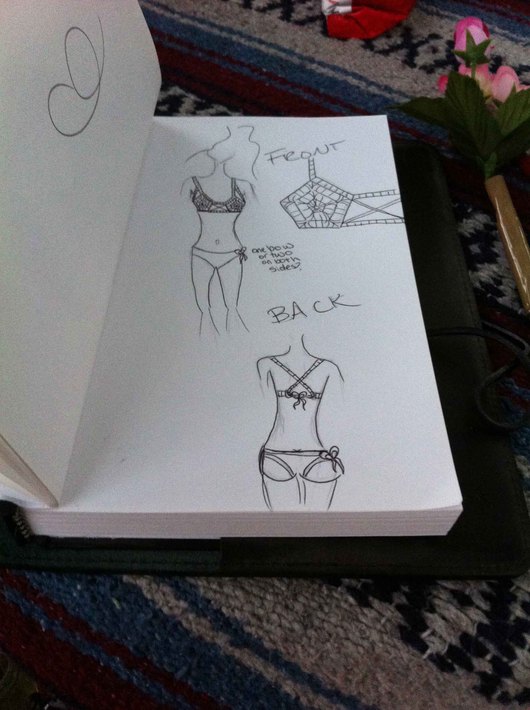 FRONT
one bow
or two
on both
sides
BACK